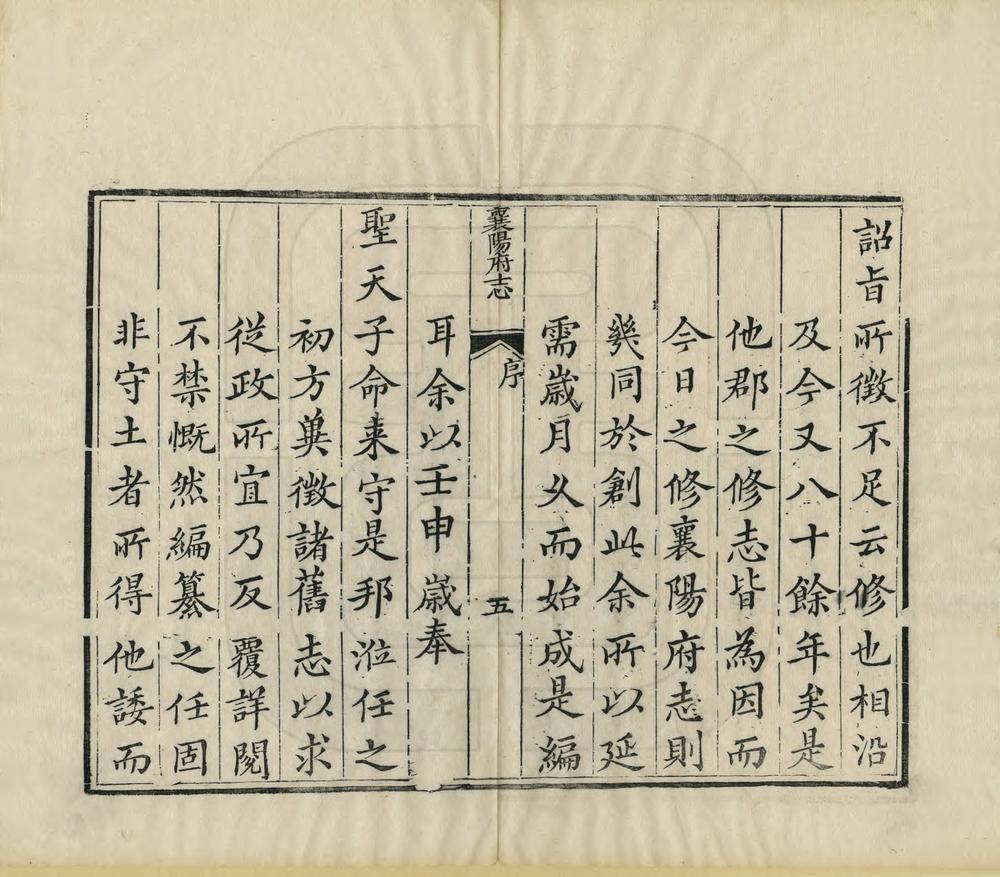 詔旨所徵不足云修也相沿
及今又八十餘年矣是
他郡之修志皆為因而
今日之修襄陽府志則
幾同於創此余所以延
需歲月乆而始成是編
襄陽府志
序
五
耳余以壬申歲奉
聖天子命來守是邦涖任之
初方兾徵諸舊志以求
從政所宜乃反覆詳閱
不禁慨然編纂之任固
非守土者所得他諉而